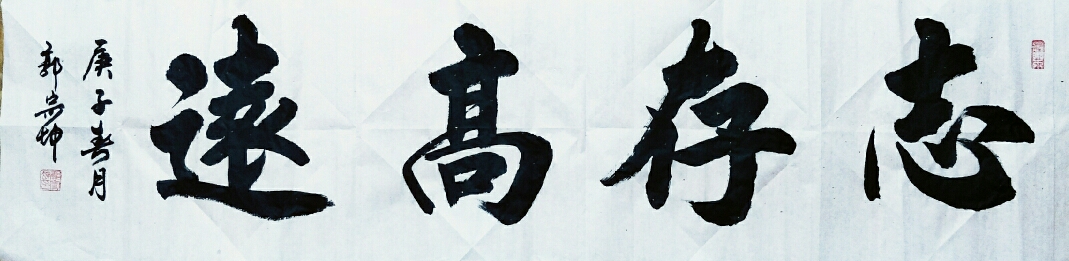 志存高遠
庚子春月
郭宗坤